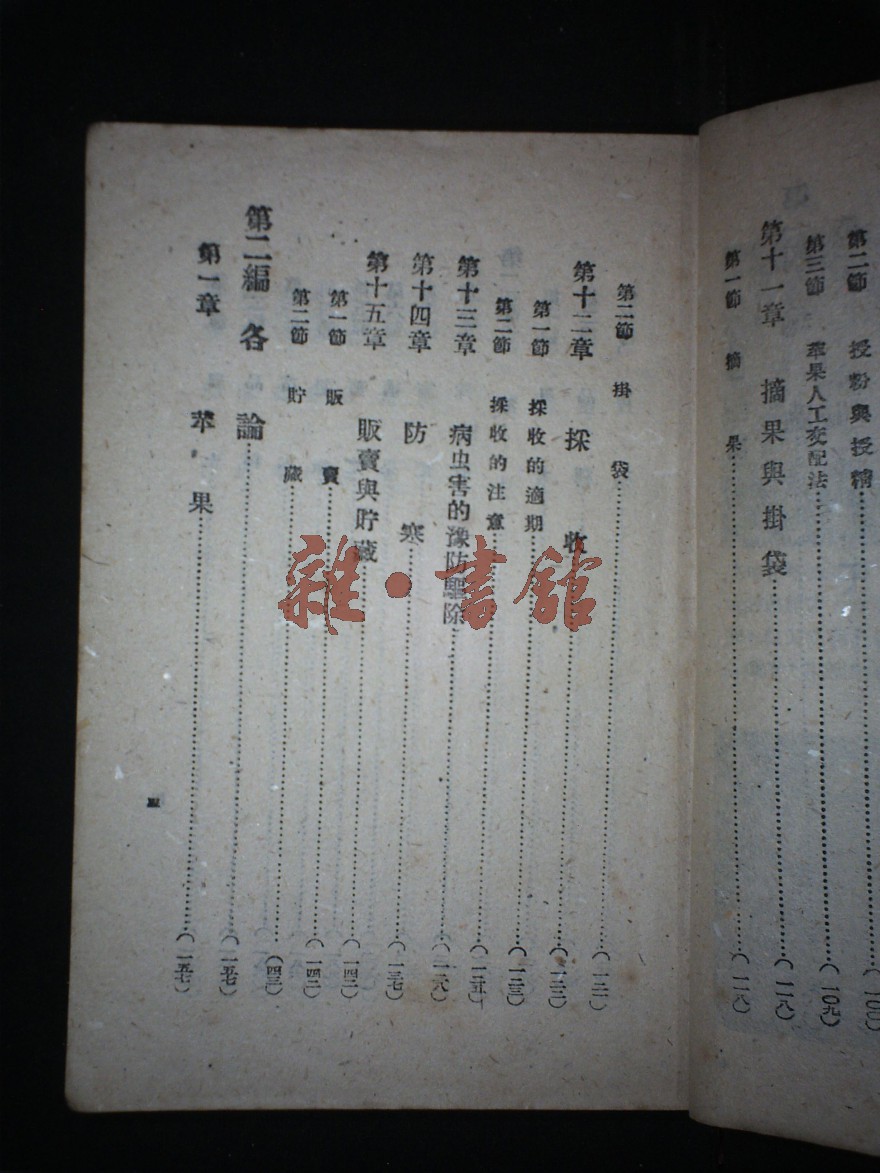 第二節 授粉與授精
第三節 苹果人工交配法……(一〇九)
第十一章 摘果與掛袋……(一一八)
第一節 摘果……(一一八)
第二節 掛袋……(一二一)
第十二章 採收……(一二二)
第一節 採收的適期……(一二三)
第二節 採收的注意……(一二五)
第十三章 病虫害的豫防驅除……(一二九)
第十四章 防寒……(一三七)
第十五章 販賣與貯藏……(一四二)
第一節 販賣……(一四二)
第二節 貯藏……(一四三)
第二編 各論……(一五七)
第一章 苹果……(一五七)
雜·書館